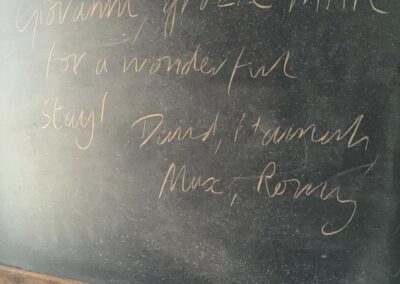 Giovanni, grazie mille
for a wonderful
stay!
David, Hannah
Max, Romy